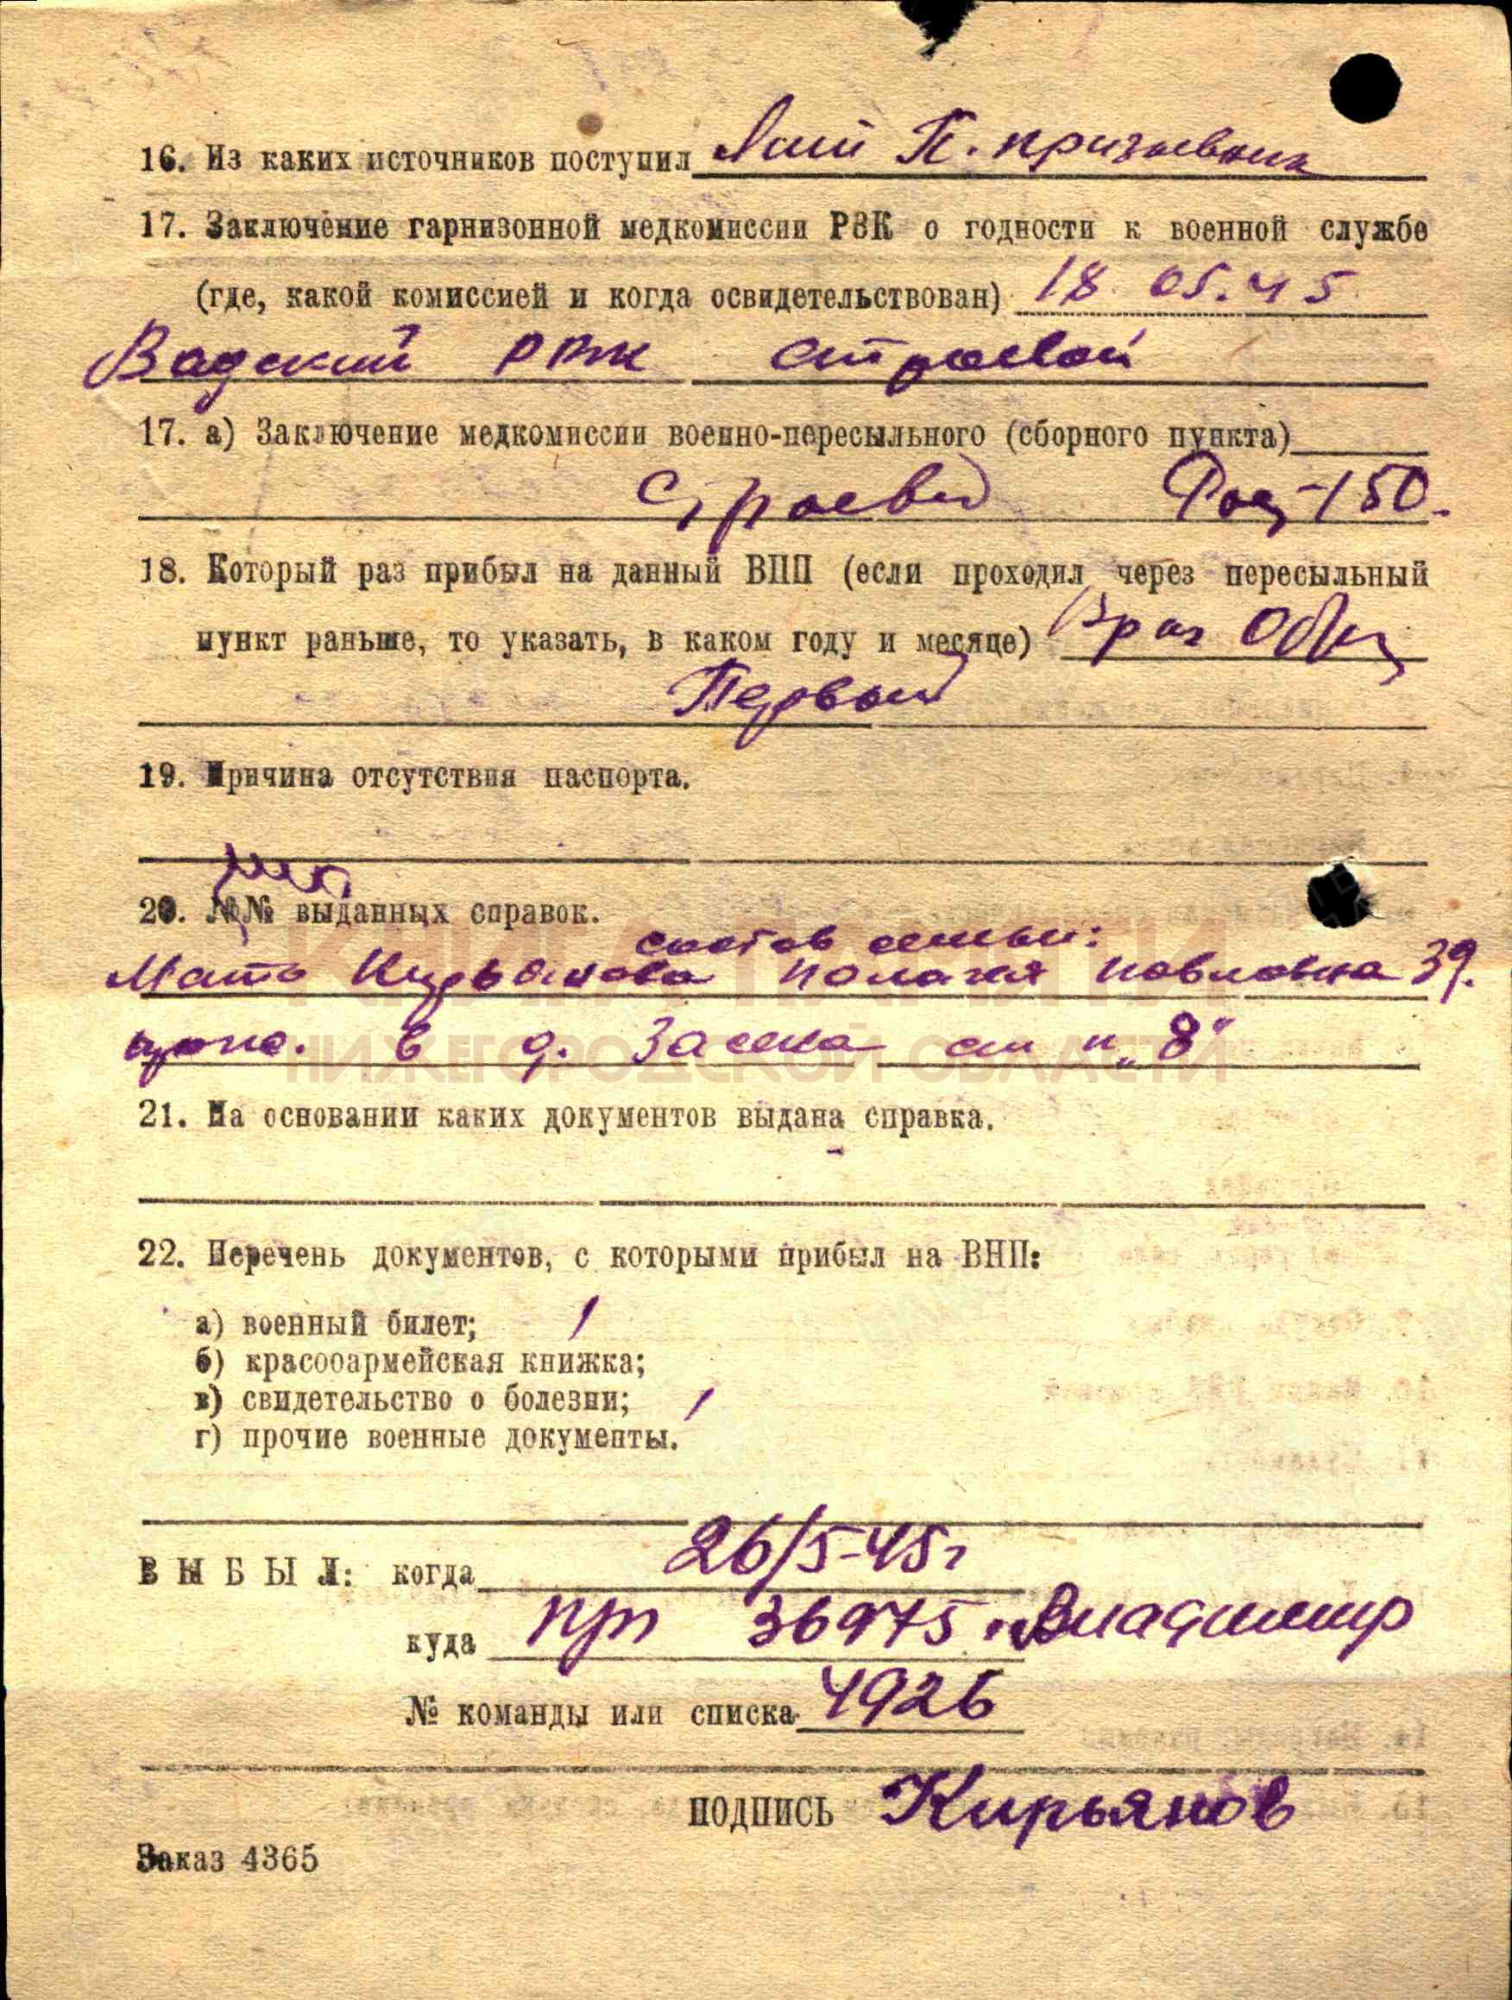 16. Из каких источников поступил П. призывник
17. Заключение гарнизонной медкомиссии РВК о годности к военной службе
(где, какой комиссией и когда освидетельствован) 18 05.45
Вадский РВК строевой
17. а) Заключение медкомиссии военно-пересыльного (сборного пункта)
Строевой -150.
18. Который раз прибыл на данный ВПП (если проходил через пересыльный
пункт раньше, то указать, в каком году и месяце)
Первый
19. Причина отсутствия паспорта.
20. №№ выданных справок.
состав семьи:
Мать Кирьянова Полагея Павловна 39.
в д. Засека см п „8"
КНИГА ПАМЯТИ
НИЖЕГОРОДСКОЙ ОБЛАСТИ
21. На основании каких документов выдана справка.
22. Перечень документов, с которыми прибыл на ВПП:
а) военный билет; 1
б) красооармейская книжка;
в) свидетельство о болезни; 1
г) прочие военные документы.
ВЫБЫЛ: когда 26/5-45г
куда 36975 Владимир
№ команды или списка 4926
ПОДПИСЬ Кирьянов
Заказ 4365